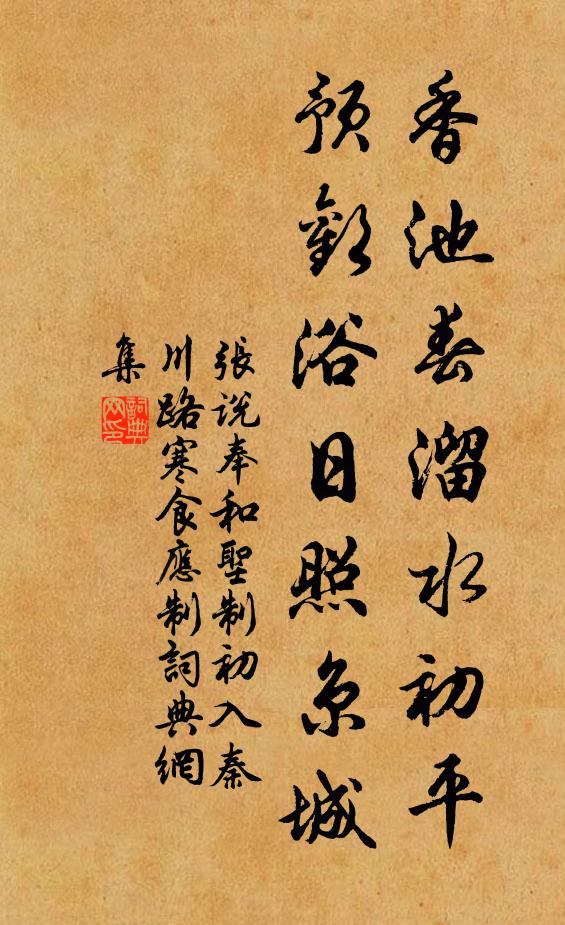 香池春溜水初平
預歡浴日照京城
張說奉和聖制初入秦
川路寒食應制詞典網
集
詞典
网印